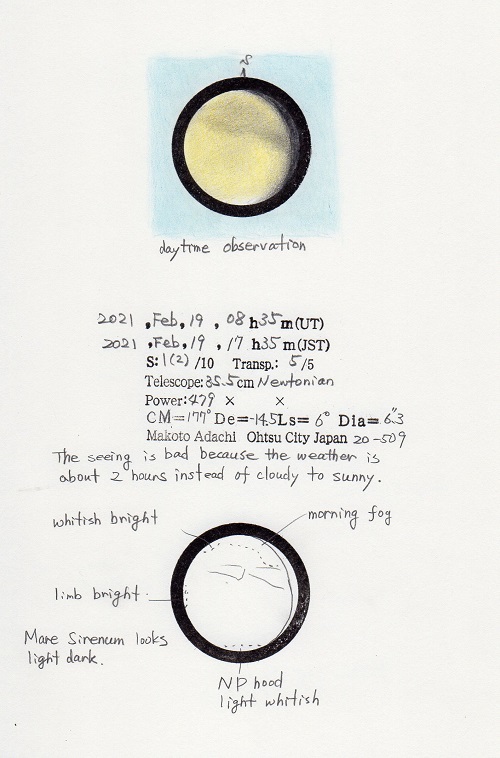 S
daytime observation
2021 , Feb, 19 , 08 h 35 m (UT)
2021 , Feb, 19 , 17 h 35 m (JST)
S: 1(2) /10 Transp.: 5/5
Telescope: 35.5cm Newtonian
Power: 479 × ×
CM=177° De=-14.5 Ls= 6° Dia= 6.″3
Makoto Adachi Ohtsu City Japan 20-509
The seeing is bad because the weather is
about 2 hours instead of cloudy to sunny.
whitish bright
morning fog
limb bright
Mare Sirenum looks
light dark.
NP hood
light whitish